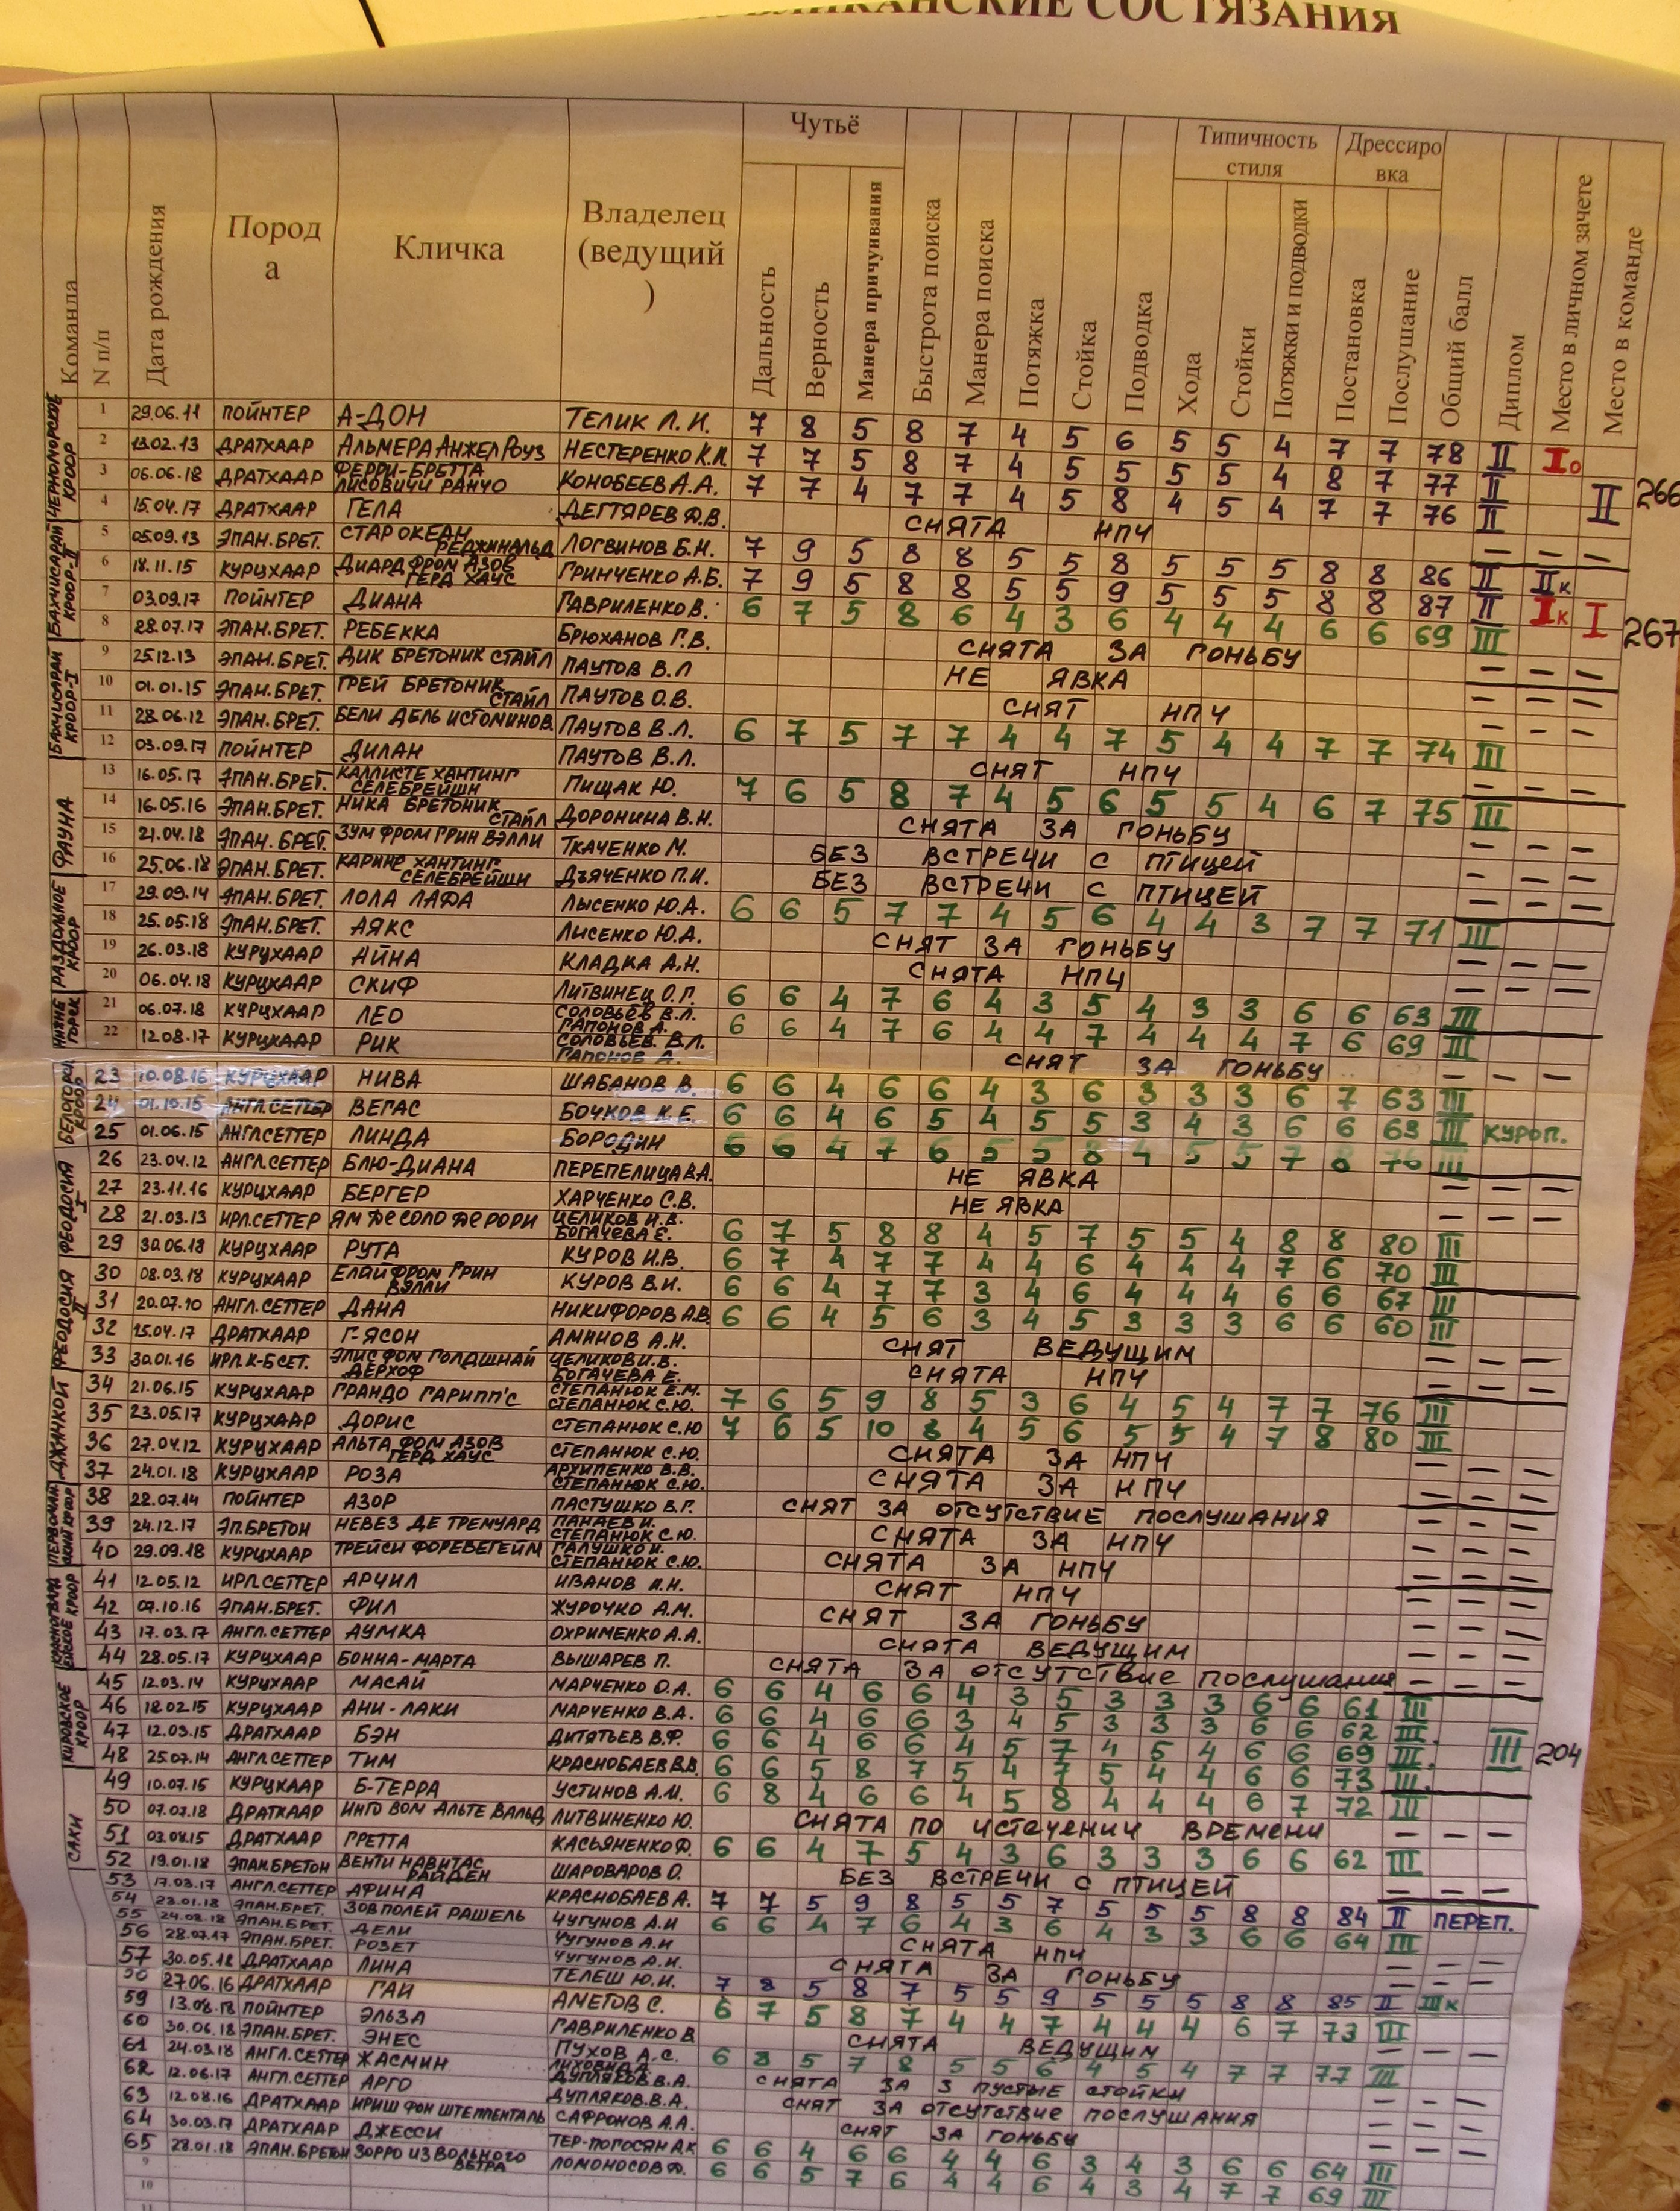 СОСТЯЗАНИЯ
Команда N п/п Дата рождения Порода Кличка Владелец (ведущий) Чутьё Дальность Верность Манера причуивания Быстрота поиска Манера поиска Потяжка Стойка Подводка Типичность стиля Хода Стойки Потяжки и подводки Дрессировка Постановка Послушание Общий балл Диплом Место в личном зачете Место в команде
ЧЕРНОМОРСКОЕ КРООР
1 29.06.11 ПОЙНТЕР А-ДОН ТЕЛИК Л.И. 7 8 5 8 7 4 5 6 5 5 4 7 7 78 II I о
2 13.02.13 ДРАТХААР АЛЬМЕРА АНЖЕЛ РОУЗ НЕСТЕРЕНКО К.И. 7 7 5 8 7 4 5 5 5 5 4 8 7 77 II
3 06.06.18 ДРАТХААР ФЕРРИ-БРЕТТА ЛИСОВИЧИ РАНЧО КОНОБЕЕВ А.А. 7 7 4 7 7 4 5 8 4 5 4 7 7 76 II II 266
4 15.04.17 ДРАТХААР ГЕЛА ДЕГТЯРЕВ Д.В. СНЯТА НПЧ — — —
БАХЧИСАРАЙ КРООР-II
5 05.09.13 ЭПАН.БРЕТ. СТАР ОКЕАН РЕДЖИНАЛЬД ЛОГВИНОВ Б.Н. 7 9 5 8 8 5 5 8 5 5 5 8 8 86 II II к
6 18.11.15 КУРЦХААР ДИАРД ФРОМ АЗОВ ГЕРД ХАУС ГРИНЧЕНКО А.Б. 7 9 5 8 8 5 5 9 5 5 5 8 8 87 II I к I
7 03.09.17 ПОЙНТЕР ДИАНА ГАВРИЛЕНКО В. 6 7 5 8 6 4 3 6 4 4 4 6 6 69 III 267
8 28.07.17 ЭПАН.БРЕТ. РЕБЕККА БРЮХАНОВ Г.В. СНЯТА ЗА ГОНЬБУ — — —
БАХЧИСАРАЙ КРООР-I
9 25.12.13 ЭПАН.БРЕТ. ДИК БРЕТОНИК СТАЙЛ ПАУТОВ В.Л НЕ ЯВКА — — —
10 01.01.15 ЭПАН.БРЕТ. ГРЕЙ БРЕТОНИК СТАЙЛ ПАУТОВ О.В. СНЯТ НПЧ — — —
11 28.06.12 ЭПАН.БРЕТ. БЕЛИ ДЕЛЬ ИСТОМИНОВ ПАУТОВ В.Л. 6 7 5 7 7 4 4 7 5 4 4 7 7 74 III
12 03.09.17 ПОЙНТЕР ДИЛАН ПАУТОВ В.Л. СНЯТ НПЧ — — —
ФАУНА
13 16.05.17 ЭПАН.БРЕТ. КАЛЛИСТЕ ХАНТИНГ СЕЛЕБРЕЙШН ПИЩАК Ю. 7 6 5 8 7 4 5 6 5 5 4 6 7 75 III
14 16.05.16 ЭПАН.БРЕТ. НИКА БРЕТОНИК СТАЙЛ ДОРОНИНА В.Н. СНЯТА ЗА ГОНЬБУ — — —
15 21.04.18 ЭПАН.БРЕТ. ЗУМ ФРОМ ГРИН ВЭЛЛИ ТКАЧЕНКО М. БЕЗ ВСТРЕЧИ С ПТИЦЕЙ — — —
16 25.06.18 ЭПАН.БРЕТ. КАРИНГ ХАНТИНГ СЕЛЕБРЕЙШН ДЬЯЧЕНКО П.И. БЕЗ ВСТРЕЧИ С ПТИЦЕЙ — — —
РАЗДОЛЬНОЕ КРООР
17 29.09.14 ЭПАН.БРЕТ. ЛОЛА ЛАФА ЛЫСЕНКО Ю.А. 6 6 5 7 7 4 5 6 4 4 3 7 7 71 III
18 25.05.18 ЭПАН.БРЕТ. АЯКС ЛИСЕНКО Ю.А. СНЯТ ЗА ГОНЬБУ — — —
19 26.03.18 КУРЦХААР АЙНА КЛАДКА А.Н. СНЯТА НПЧ — — —
20 06.04.18 КУРЦХААР СКИФ ЛИТВИНЕЦ О.Г. 6 6 4 7 6 4 3 5 4 3 3 6 6 63 III
НИЖНЕГОРСК
21 06.07.18 КУРЦХААР ЛЕО СОЛОВЬЕВ В.Л. ГАПОНОВ А. 6 6 4 7 6 4 4 7 4 4 4 7 6 69 III
22 12.08.17 КУРЦХААР РИК СОЛОВЬЕВ В.Л. ГАПОНОВ А. СНЯТ ЗА ГОНЬБУ — — —
БЕЛОГОРСК КРООР
23 10.08.16 КУРЦХААР НИВА ШАБАНОВ В. 6 6 4 6 6 4 3 6 3 3 3 6 7 63 III
24 01.10.15 АНГЛ.СЕТТЕР ВЕГАС БОЧКОВ К.Е. 6 6 4 6 5 4 5 5 3 4 3 6 6 63 III КУРОП.
25 01.06.15 АНГЛ.СЕТТЕР ЛИНДА БОРОДИН 6 6 4 7 6 5 5 8 4 5 5 7 8 76 III
ФЕОДОСИЯ I
26 23.04.12 АНГЛ.СЕТТЕР БЛЮ-ДИАНА ПЕРЕПЕЛИЦА В.А. НЕ ЯВКА — — —
27 23.11.16 КУРЦХААР БЕРГЕР ХАРЧЕНКО С.В. НЕ ЯВКА — — —
28 21.03.13 ИРЛ.СЕТТЕР ЯМ ДЕ СОЛО ДЕ РОРИ ЦЕЛИКОВ И.В. БОГАЧЕВА Е. 6 7 5 8 8 4 5 7 5 5 4 8 8 80 III
29 30.06.18 КУРЦХААР РУТА КУРОВ И.В. 6 7 4 7 7 4 4 6 4 4 4 7 6 70 III
ФЕОДОСИЯ II
30 08.03.18 КУРЦХААР ЕЛАЙ ФРОМ ГРИН ВЭЛЛИ КУРОВ В.И. 6 6 4 7 7 3 4 6 4 4 4 6 6 67 III
31 20.07.10 АНГЛ.СЕТТЕР ДАНА НИКИФОРОВ А.В. 6 6 4 5 6 3 4 5 3 3 3 6 6 60 III
32 15.04.17 ДРАТХААР Г-ЯСОН АМИНОВ А.Н. СНЯТ ВЕДУЩИМ — — —
33 30.01.16 ИРЛ.К-Б СЕТ. ЭЛИС ФОМ ГОЛДШНАЙ ДЕРХОФ ЦЕЛИКОВ И.В. БОГАЧЕВА Е. СНЯТА НПЧ — — —
ДЖАНКОЙ
34 21.06.15 КУРЦХААР ГРАНДО ГАРИПП'С СТЕПАНЮК Е.М. СТЕПАНЮК С.Ю. 7 6 5 9 8 5 3 6 4 5 4 7 7 76 III
35 23.05.17 КУРЦХААР ДОРИС СТЕПАНЮК С.Ю 7 6 5 10 8 4 5 6 5 5 4 7 8 80 III
36 27.04.12 КУРЦХААР АЛЬТА ФОМ АЗОВ ГЕРД ХАУС СТЕПАНЮК С.Ю. СНЯТА ЗА НПЧ — — —
37 24.01.18 КУРЦХААР РОЗА АРХИПЕНКО В.В. СТЕПАНЮК С.Ю. СНЯТА ЗА НПЧ — — —
38 22.07.14 ПОЙНТЕР АЗОР ПАСТУШКО В.Г. СНЯТ ЗА ОТСУТСТВИЕ ПОСЛУШАНИЯ — — —
39 24.12.17 ЭП.БРЕТОН НЕВЕЗ ДЕ ТРЕМУАРД ПАНАЕВ И. СТЕПАНЮК С.Ю. СНЯТА ЗА НПЧ — — —
40 29.09.18 КУРЦХААР ТРЕЙСИ ФОРЕВЕГЕЙМ ГАЛУШКО И. СТЕПАНЮК С.Ю. СНЯТА ЗА НПЧ — — —
41 12.05.12 ИРЛ.СЕТТЕР АРЧИЛ ИВАНОВ И.Н. СНЯТ НПЧ — — —
42 07.10.16 ЭПАН.БРЕТ. ФИЛ ЖУРОЧКО А.М. СНЯТ ЗА ГОНЬБУ — — —
43 17.03.17 АНГЛ.СЕТТЕР АУМКА ОХРИМЕНКО А.А. СНЯТА ВЕДУЩИМ — — —
44 28.05.17 КУРЦХААР БОННА-МАРТА ВЫШАРЕВ П. СНЯТА ЗА ОТСУТСТВИЕ ПОСЛУШАНИЯ — — —
КИРОВСКОЕ КРООР
45 12.03.14 КУРЦХААР МАСАЙ МАРЧЕНКО О.А. 6 6 4 6 6 4 3 5 3 3 3 6 6 61 III
46 18.02.15 КУРЦХААР АНИ-ЛАКИ МАРЧЕНКО В.А. 6 6 4 6 6 3 4 5 3 3 3 6 6 62 III.
47 12.03.15 ДРАТХААР БЭН ДИТЯТЬЕВ В.Ф. 6 6 4 6 6 4 5 7 4 5 4 6 6 69 III. III 204
48 25.07.14 АНГЛ.СЕТТЕР ТИМ КРАСНОБАЕВ В.В. 6 6 5 8 7 5 4 7 5 4 4 6 6 73 III.
САКИ
49 10.07.15 КУРЦХААР Б-ТЕРРА УСТИНОВ А.И. 6 8 4 6 6 4 5 8 4 4 4 6 7 72 III
50 07.07.18 ДРАТХААР ИНГО ВОМ АЛЬТЕ ВАЛЬД ЛИТВИНЕНКО Ю. СНЯТА ПО ИСТЕЧЕНИИ ВРЕМЕНИ — — —
51 03.08.15 ДРАТХААР ГРЕТТА КАСЬЯНЕНКО Ф. 6 6 4 7 5 4 3 6 3 3 3 6 6 62 III
52 19.01.18 ЭПАН.БРЕТОН ВЕНТИ НАВИТАС РАЙДЕН ШАРОВАРОВ О. БЕЗ ВСТРЕЧИ С ПТИЦЕЙ — — —
53 17.03.17 АНГЛ.СЕТТЕР АФИНА КРАСНОБАЕВ А. 7 7 5 9 8 5 5 7 5 5 5 8 8 84 II ПЕРЕП.
54 23.01.18 ЭПАН.БРЕТ. ЗОВ ПОЛЕЙ РАШЕЛЬ ЧУГУНОВ А.И 6 6 4 7 6 4 3 6 4 3 3 6 6 64 III
55 24.02.18 ЭПАН.БРЕТ. ДЕЛИ ЧУГУНОВ А.И СНЯТА НПЧ — — —
56 28.07.17 ЭПАН.БРЕТ. РОЗЕТ ЧУГУНОВ А.И. СНЯТА ЗА ГОНЬБУ — — —
57 30.05.18 ДРАТХААР ЛИНА ТЕЛЕШ Ю.И. 7 8 5 8 7 5 5 9 5 5 5 8 8 85 II III к
27.06.16 ДРАТХААР ГАЙ АМЕТОВ С. 6 7 5 8 7 4 4 7 4 4 4 6 7 73 III
59 13.08.18 ПОЙНТЕР ЭЛЬЗА ГАВРИЛЕНКО В СНЯТА ВЕДУЩИМ — — —
60 30.06.18 ЭПАН.БРЕТ. ЭНЕС ПУХОВ А.С. 6 8 5 7 8 5 5 6 4 5 4 7 7 77 III
61 24.03.18 АНГЛ.СЕТТЕР ЖАСМИН ДУПЛЯКОВ В.А. СНЯТА ЗА 3 ПУСТЫЕ СТОЙКИ — — —
62 12.06.17 АНГЛ.СЕТТЕР АРГО ДУПЛЯКОВ.В.А. СНЯТ ЗА ОТСУТСТВИЕ ПОСЛУШАНИЯ — — —
63 12.08.16 ДРАТХААР ИРИШ ФОН ШТЕППЕНТАЛЬ САФРОНОВ А.А. СНЯТ ЗА ГОНЬБУ — — —
64 30.03.17 ДРАТХААР ДЖЕССИ ТЕР-ПОГОСЯН А.К 6 6 4 6 6 4 4 6 3 4 3 6 6 64 III
65 28.01.18 ЭПАН.БРЕТОН ЗОРРО ИЗ ВОЛЬНОГО ВЕТРА ЛОМОНОСОВ Ф. 6 6 5 7 6 4 4 6 4 3 4 7 7 69 III
9
10